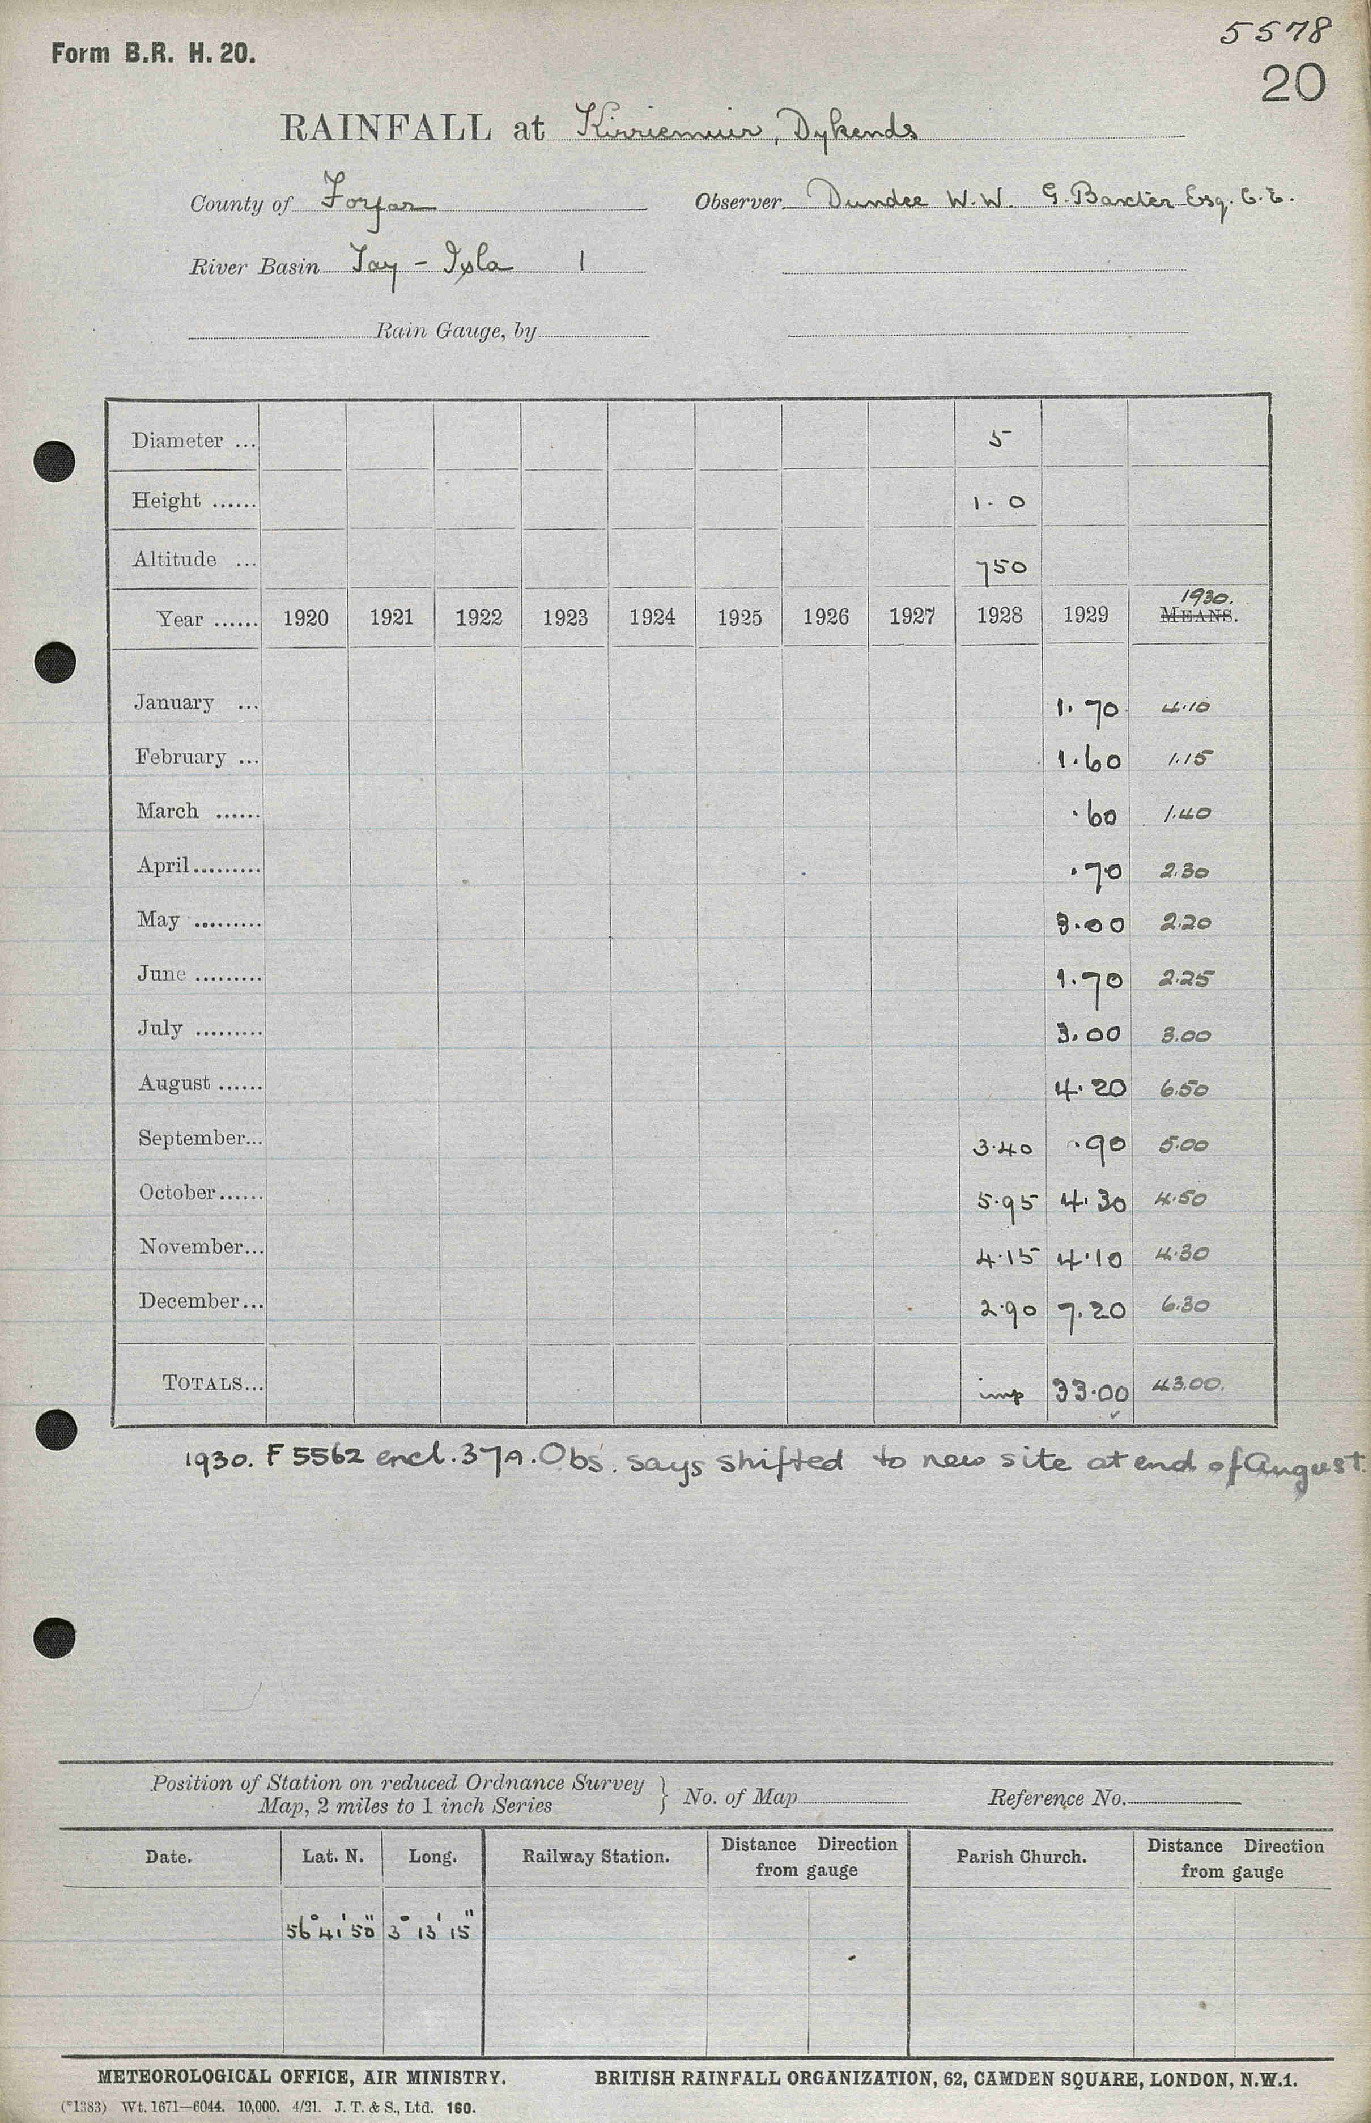 5578
Form B.R. H. 20.
20
RAINFALL at Kirriemuir, Dykends
County of Forfar Observer Dundee W.W. G. Baxter Esq. C.E.
River Basin Tay - Isla 1
Rain Gauge, by
Diameter ... 5
Height ...... 1. 0
Altitude ... 750
1930.
Year ...... 1920 1921 1922 1923 1924 1925 1926 1927 1928 1929 MEANS.
January ... 1.70 4.10
February ... 1.60 1.15
March ...... .60 1.40
April......... .70 2.30
May ......... 3.00 2.20
June ......... 1.70 2.25
July ......... 3.00 3.00
August ...... 4.20 6.50
September... 3.40 .90 5.00
October...... 5.95 4.30 4.50
November... 4.15 4.10 4.30
December... 2.90 7.20 6.30
TOTALS... imp 33.00 43.00.
1930. F 5562 encl. 37A. Obs. says shifted to new site at end of August.
Position of Station on reduced Ordnance Survey
Map, 2 miles to 1 inch Series } No. of Map Reference No.
Date. Lat. N. Long. Railway Station. Distance Direction from gauge Parish Church. Distance Direction from gauge
56° 41' 50" 3° 13' 15"
METEOROLOGICAL OFFICE, AIR MINISTRY. BRITISH RAINFALL ORGANIZATION, 62, CAMDEN SQUARE, LONDON, N.W.1.
(*1383) Wt. 1671—6044. 10,000. 4/21. J. T. & S., Ltd. 160.